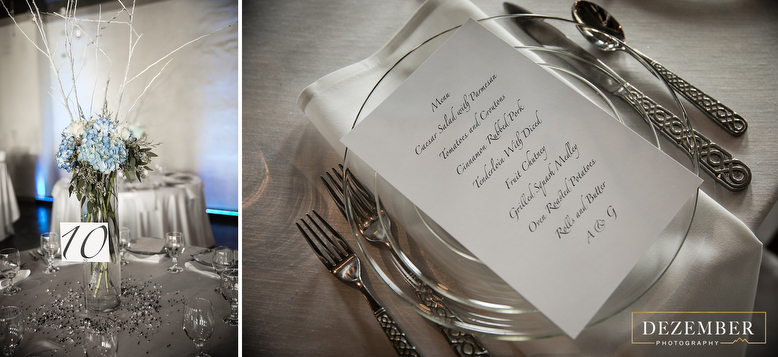 10
Menu
Caesar Salad with Parmesan
Tomatoes and Croutons
Cinnamon Rubbed Pork
Tenderloin With Diced
Fruit Chutney
Grilled Squash Medley
Oven Roasted Potatoes
Rolls and Butter
A & G
DEZEMBER
PHOTOGRAPHY